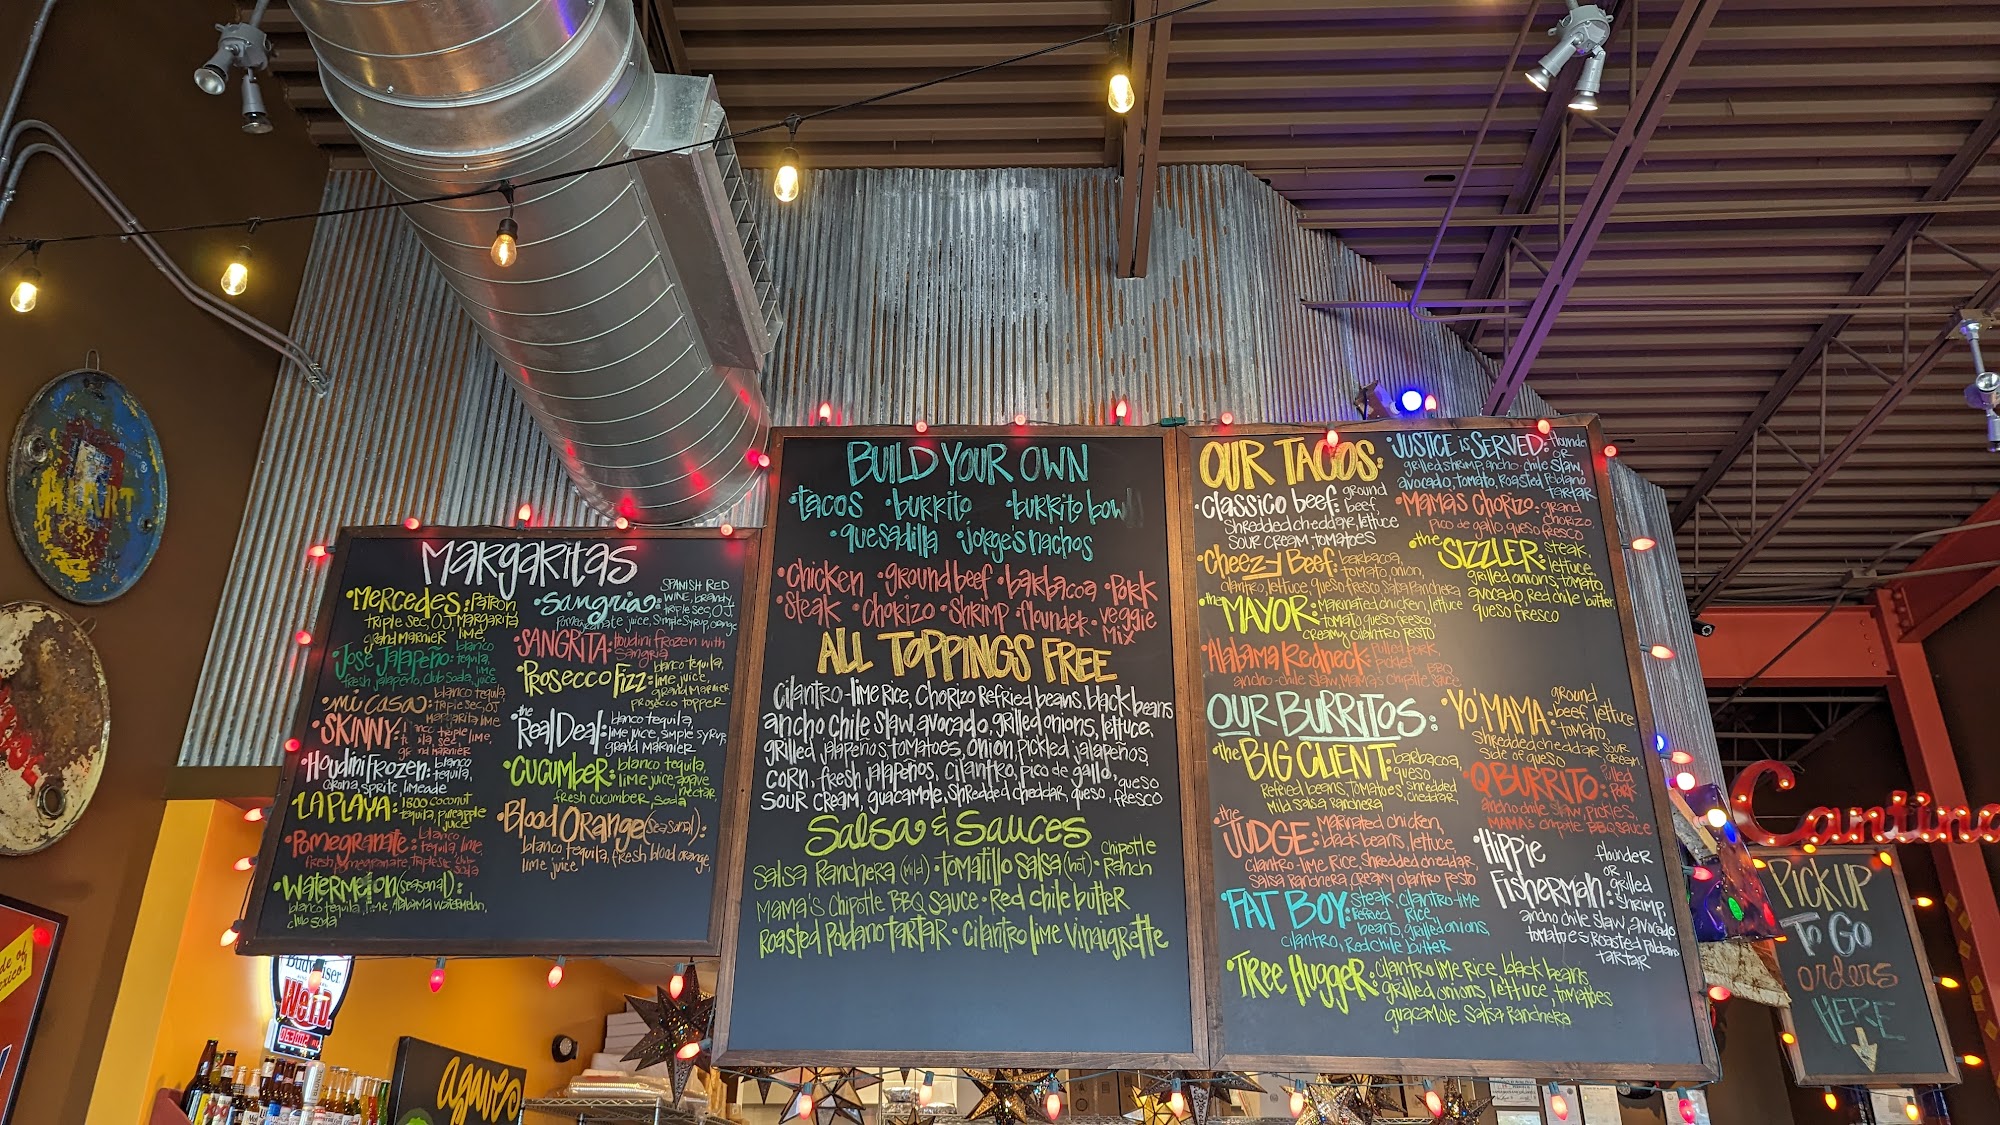 MARGARITAS
•MERCEDES: PATRON
triple sec, OJ, MARGARITA
grand marnier lime,
•Jose Jalapeño: blanco
tequila,
fresh jalapeño, club soda, juice lime
•mi casa: blanco tequila,
triple sec, OJ
margarita lime
•SKINNY:
triple lime,
sec,
•Houdini Frozen: blanco
tequila,
corona, sprite, limeade
•LA PLAYA: 1800 coconut
tequila, pineapple
juice
•Pomegranate: blanco
tequila, lime,
fresh pomegranate, triple sec, club
soda
•Watermelon (seasonal):
blanco tequila, lime, Alabama watermelon,
club soda
•Sangria: SPANISH RED
WINE, brandy,
triple sec, OJ
pomegranate juice, simple syrup, orange
•SANGRITA: Houdini frozen with
sangria
•Prosecco Fizz: blanco tequila,
lime juice,
grand marnier,
prosecco topper
•the Real Deal: blanco tequila,
lime juice, simple syrup,
grand marnier
•CUCUMBER: blanco tequila,
lime juice, agave
nectar,
fresh cucumber, soda
•Blood Orange (seasonal):
blanco tequila, fresh blood orange,
lime juice
BUILD YOUR OWN
•tacos •burrito •burrito bowl
•quesadilla •jorge's nachos
•Chicken •ground beef •barbacoa •Pork
•Steak •Chorizo •Shrimp •flounder •veggie
mix
ALL TOPPINGS FREE
Cilantro-lime Rice, Chorizo Refried beans, black beans
ancho chile slaw, avocado, grilled onions, lettuce,
grilled jalapeños, tomatoes, onion, pickled jalapeños,
corn, fresh jalapeños, cilantro, pico de gallo,
sour cream, guacamole, shredded cheddar, queso, queso fresco
Salsa & Sauces
Salsa Ranchera (mild) •tomatillo salsa (hot) •Chipotle Ranch
Mama's Chipotle BBQ Sauce •Red chile butter
Roasted Poblano tartar •cilantro lime vinaigrette
OUR TACOS:
•Classico beef: ground
beef,
shredded cheddar, lettuce
sour cream, tomatoes
•Cheezy Beef: barbacoa,
tomato, onion,
cilantro, lettuce, queso fresco, salsa Ranchera
•the MAYOR: marinated chicken, lettuce
tomato, queso fresco,
creamy cilantro pesto
•Alabama Redneck: Pulled pork,
pickled
ancho-chile slaw, Mama's chipotle BBQ sauce
•JUSTICE is SERVED: flounder
OR
grilled shrimp, ancho-chile slaw,
avocado, tomato, Roasted Poblano
tartar
•MAMA'S CHORIZO: grand
chorizo,
pico de gallo, queso fresco
•the SIZZLER: steak,
lettuce,
grilled onions, tomato,
avocado, red chile butter,
queso fresco
OUR BURRITOS:
•the BIG CLIENT: barbacoa,
queso,
Refried beans, tomatoes, shredded
cheddar,
mild salsa Ranchera
•the JUDGE: marinated chicken,
black beans, lettuce,
cilantro-lime Rice, shredded cheddar,
salsa Ranchera, creamy cilantro pesto
•FAT BOY: steak, cilantro-lime
Rice,
Refried
beans, grilled onions,
cilantro, Red chile butter
•TREE HUGGER: cilantro lime rice, black beans
grilled onions, lettuce, tomatoes
guacamole, salsa Ranchera
•YO' MAMA: ground
beef, lettuce
tomato,
shredded cheddar, sour
cream,
side of queso
•Q BURRITO: pulled
pork
ancho chile slaw, pickles,
MAMA'S chipotle BBQ sauce
•Hippie Fisherman: flounder
OR
grilled
shrimp,
ancho chile slaw, avocado
tomatoes, Roasted Poblano
tartar
Cantina
PICK UP
To Go
orders
HERE
Budweiser
agave